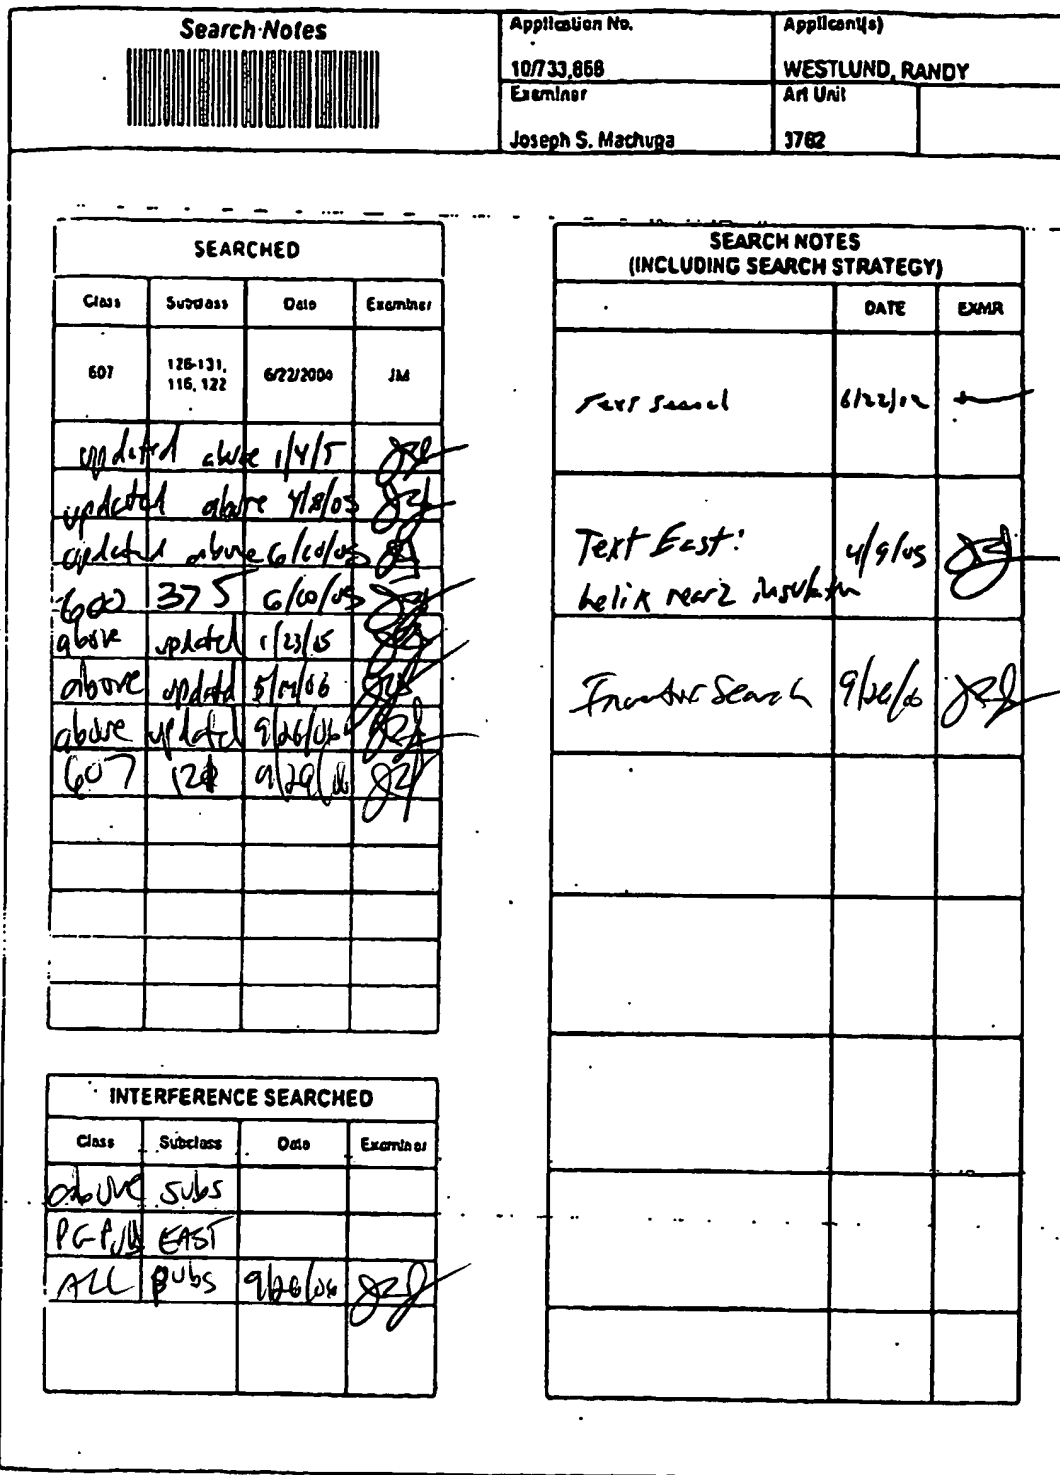 Search Notes
Application No.
10/733,868
Applicant(s)
WESTLUND, RANDY
Examiner
Joseph S. Machuga
Art Unit
3762
SEARCHED
Class Subclass Date Examiner
607 126-131, 116, 122 6/22/2004 JM
updated above 1/4/5
updated above 4/8/05
updated above 6/10/05
600 375 6/10/05
above updated 1/23/05
above updated 5/ /06
above updated 9/26/06
607 9/29/06
INTERFERENCE SEARCHED
Class Subclass Date Examiner
above subs
PG-PUB EAST
ALL pubs 9/26/06
SEARCH NOTES
(INCLUDING SEARCH STRATEGY)
DATE EXMR
Text search 6/22/
Text East: 4/9/05
helix near2 insulation
Search 9/26/06